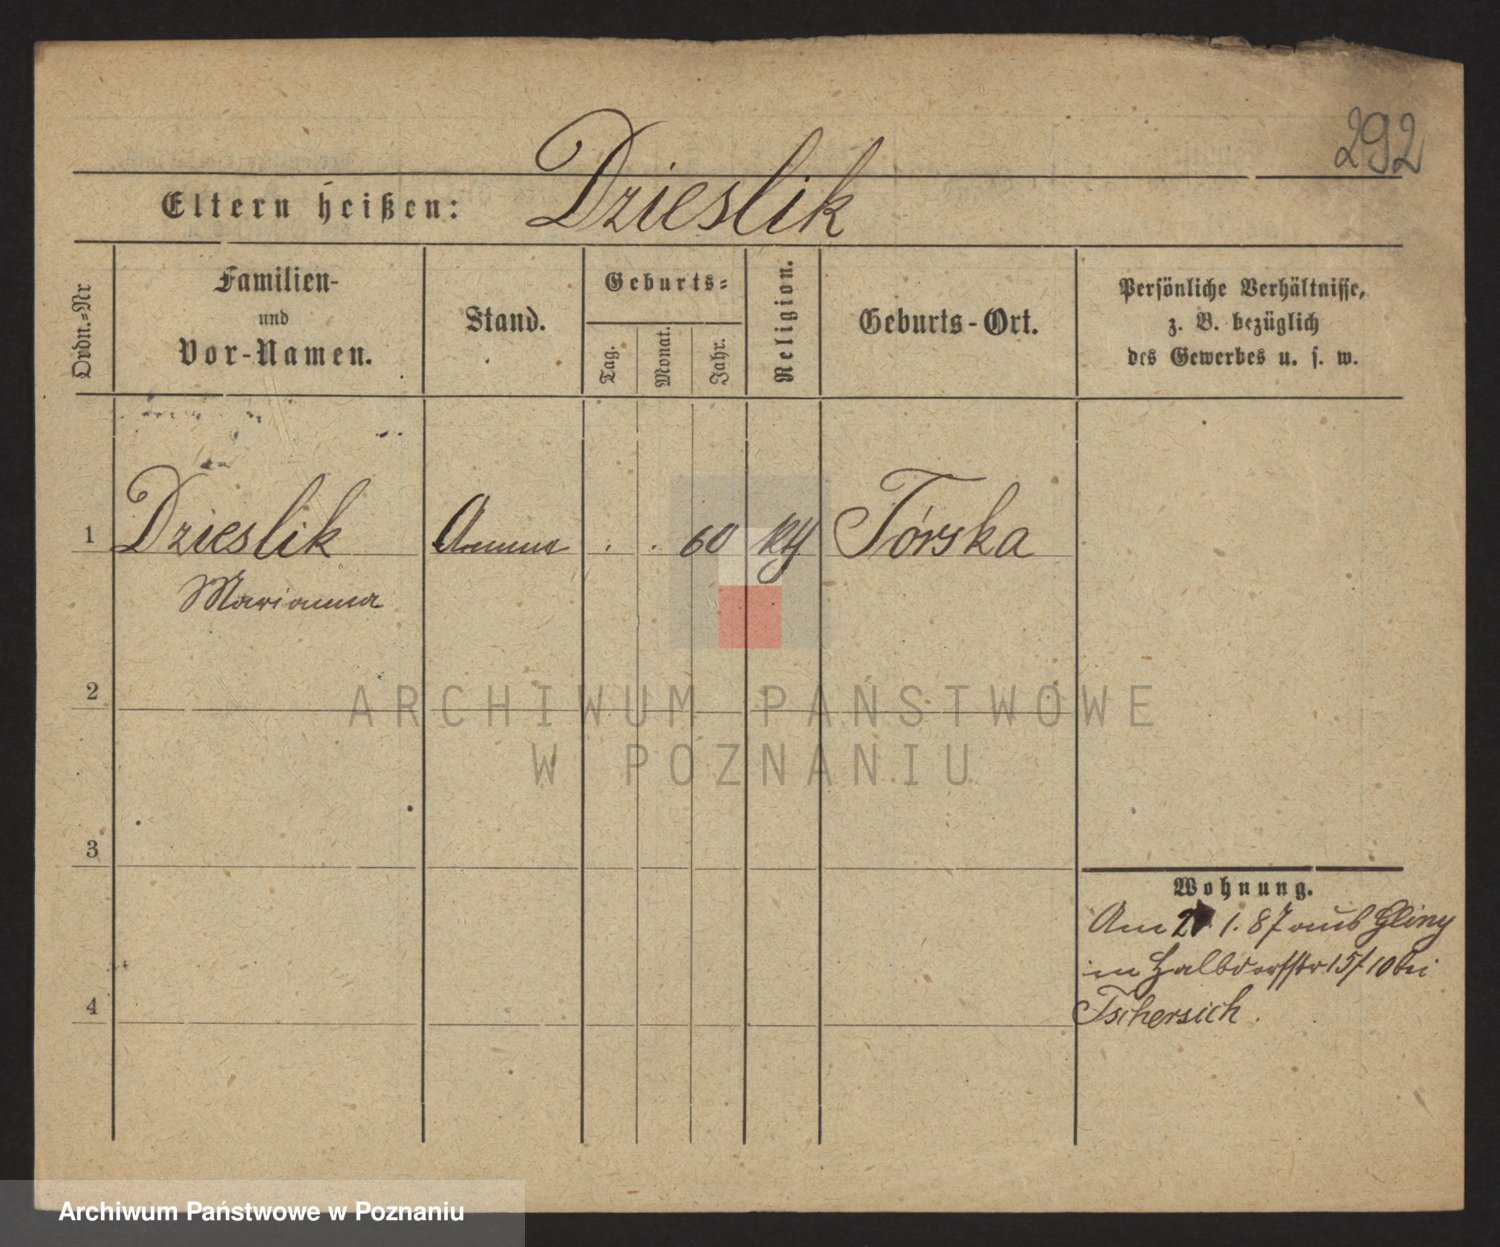 292
Dzieslik
Eltern heißen:
Ordn.=Nr
Familien-
und
Vor-Namen.
Stand.
Geburts=
Tag.
Monat.
Jahr.
Religion.
Geburts-Ort.
Persönliche Verhältnisse,
z. B. bezüglich
des Gewerbes u. s. w.
1 Dzieslik Amme . . 60 Kth Tórska
Marianna
2
ARCHIWUM PAŃSTWOWE
W POZNANIU
3
Wohnung.
Am 1. 87 aus Gliny
in Halbdorfstr 15/10 bei
4
Tschersich.
Archiwum Państwowe w Poznaniu